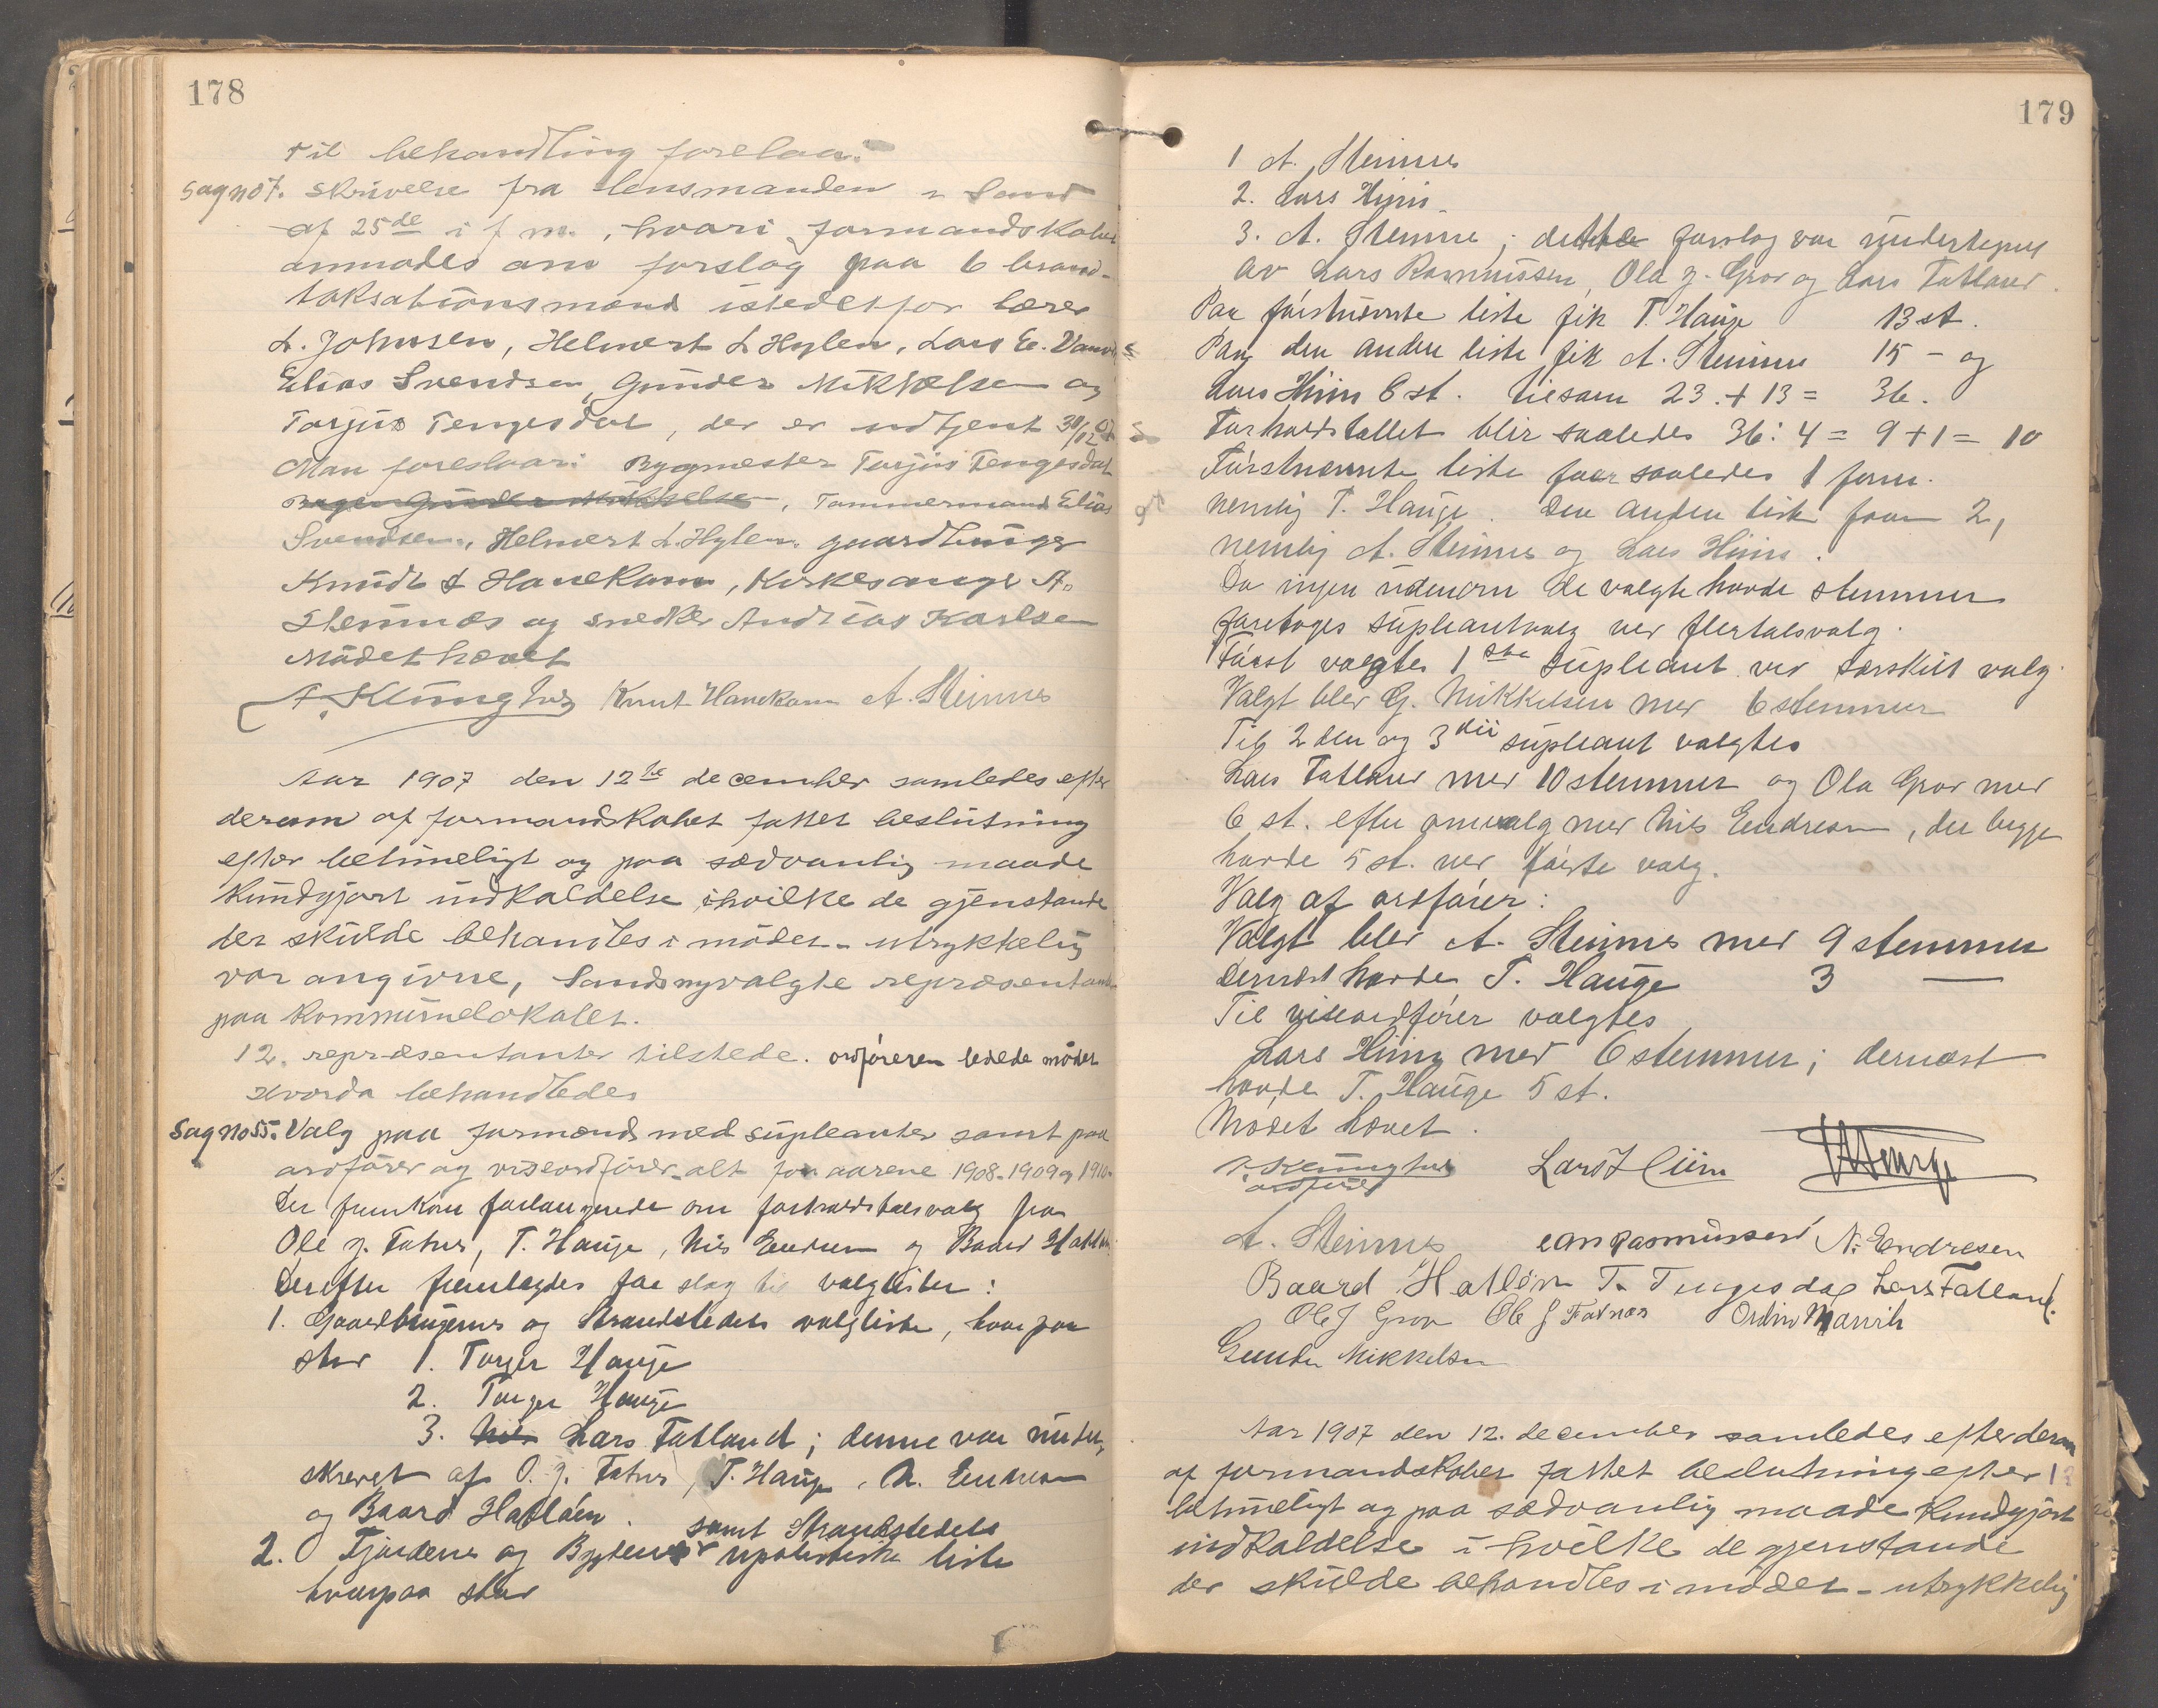 178
til behandling forelaa:
Sag no 7. Skrivelse fra lensmanden i Sand
af 25de i f m., hvori formandskabet
anmodes om forslag paa 6 brand-
taksationsmænd istedetfor lærer
L. Johnsen, Helmert L Hylen, Lars E.
Elias Svendsen, Gunder Mikkelsen og
Torjus Tengesdal, der er udtjent 31/12 07
Man foreslaar: Bygmester Torjus Tengesdal
Gunder Mikkelsen, Tømmermand Elias
Svendsen, Helmert L. Hylen, gaardbruger
Knudt Hanekam, Kirkesanger A.
Steinnes og snedker Andreas Karlsen
Mødet hævet
A. Klungtvet Knut Hanekam A. Steinnes
Aar 1907 den 12te december samledes efter
derom af formandskabet fattet beslutning
efter betimeligt og paa sædvanlig maade
kundgjort indkaldelse i hvilke de gjenstande
der skulde behandles i mødet - utrykkelig
var angivne, Sands nyvalgte repræsentanter
paa Kommunelokalet.
12 repræsentanter tilstede. ordføreren ledede mødet
Hvorda behandledes
Sag no 55. Valg paa formænd med supleanter samt paa
ordfører og viseordfører alt for aarene 1908-1909 og 1910.
Der fremkom forlangende om forholdstalsvalg fra
Ole J. Fatnes, T. Hauge, Nils Endresen og Baard Hatløen
Derefter fremlagdes forslag til valglister:
1. Gaardbrugernes og Strandstedets valgliste, hvorpaa
star 1. Torger Hauge
2. Torger Hauge
3. Nils Lars Fatland; denne var under-
skrevet af O. J. Fatnes, T. Hauge, N. Endresen
og Baard Hatløen.
2. Fjordens og Bygdens samt Strandstedets upolitiske liste
hvorpaa star
179
1 A. Steinnes
2. Lars Hiim
3. A. Steinnes; dette forslag var undertegnet
av Lars Rasmussen, Ola J. Grov og Lars Fatland.
Paa førstnævnte liste fik T. Hauge 13 st.
Paa den anden liste fik A. Steinnes 15 - og
Lars Hiim 8 st. tilsam 23 + 13 = 36.
Forholdstallet blir saaledes 36: 4 = 9 + 1 = 10
Førstnævnte liste faar saaledes 1 form.
nemlig T. Hauge. Den anden liste faar 2,
nemlig A. Steinnes og Lars Hiim.
Da ingen udenom de valgte havde stemmer
foretoges supleantvalg ved flertalsvalg.
Først valgtes 1ste supleant ved særskilt valg.
Valgt blev G. Mikkelsen med 6 stemmer
Til 2den og 3die supleant valgtes
Lars Fatland med 10 stemmer og Ola Grov med
6 st. efter omvalg med Nils Endresen, der begge
havde 5 st. ved første valg.
Valg af ordfører:
Valgt blev A. Steinnes med 9 stemmer
Dernæst havde T. Hauge 3 —
Til viseordfører valgtes
Lars Hiim med 6 stemmer; dernæst
havde T. Hauge 5 st.
Mødet hævet.
A. Klungtvet Lars Hiim T Hauge
ordfører
A. Steinnes Lars Rasmussen N. Endresen
Baard Hatløen T. Tengesdal Lars Fatland.
Ole J Grov Ole J Fatnes
Gunder Mikkelsen
Aar 1907 den 12. december samledes efter derom
af formandskabet fattet beslutning efter
betimeligt og paa sædvanlig maade kundgjort
indkaldelse i hvilke de gjenstande
der skulde behandles i mødet - utrykkelig